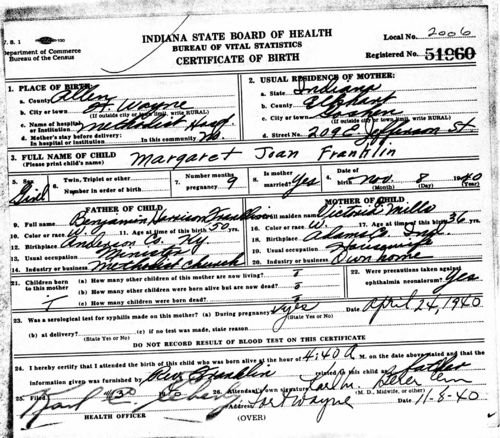 V.S. 1
Department of Commerce
Bureau of the Census
INDIANA STATE BOARD OF HEALTH
BUREAU OF VITAL STATISTICS
CERTIFICATE OF BIRTH
Local No. 2006
Registered No. 51960
1. PLACE OF BIRTH:
a. County Allen
b. City or town Ft. Wayne
(If outside city or town limit, write RURAL)
c. Name of hospital or Institution. Methodist Hosp
d. Mother's stay before delivery:
In Institution In this community no.
2. USUAL RESIDENCE OF MOTHER:
a. State Indiana
b. County Elkhart
c. City or town Goshen
(If outside city or town limit, write RURAL)
d. Street No. 209 E Jefferson St.
3. FULL NAME OF CHILD Margaret Joan Franklin
(Please print child's name)
5. Sex Girl
Twin, Triplet or other
6. Number in order of birth.
7. Number months pregnancy 9
8. Is mother married? Yes
4. Date of birth Nov. 8 1940
(Month) (Day) (Year)
FATHER OF CHILD
9. Full name Benjamin Harrison Franklin
10. Color or race W. 11. Age at time of this birth 50 yrs.
12. Birthplace Anderson Co. Ky.
13. Usual occupation Minister
14. Industry or business Methodist Church
MOTHER OF CHILD
15. Full maiden name Victoria Mills
16. Color or race W. 17. Age at time of this birth 36 yrs.
18. Birthplace Adams Co. Ind.
19. Usual occupation Housewife
20. Industry or business Own home
21. Children born to this mother
(a) How many other children of this mother are now living?
(b) How many other children were born alive but are now dead?
(c) How many children were born dead?
22. Were precautions taken against ophthalmia neonatorum? Yes
(Yes or No)
23. Was a serological test for syphilis made on this mother? (a) During pregnancy yes April 24, 1940
(State Yes or No)
(b) at delivery? (c) if no test was made, state reason
(State Yes or No)
DO NOT RECORD RESULT OF BLOOD TEST ON THIS CERTIFICATE
24. I hereby certify that I attended the birth of this child who was born alive at the hour of 4:40 A M. on the date above stated and that the
information given was furnished by Rev. Franklin related to this child as father
25.
26. Attendant's own signature
(M. D., Midwife, or other)
HEALTH OFFICER
Address Fort Wayne Date 11-8-40
(OVER)